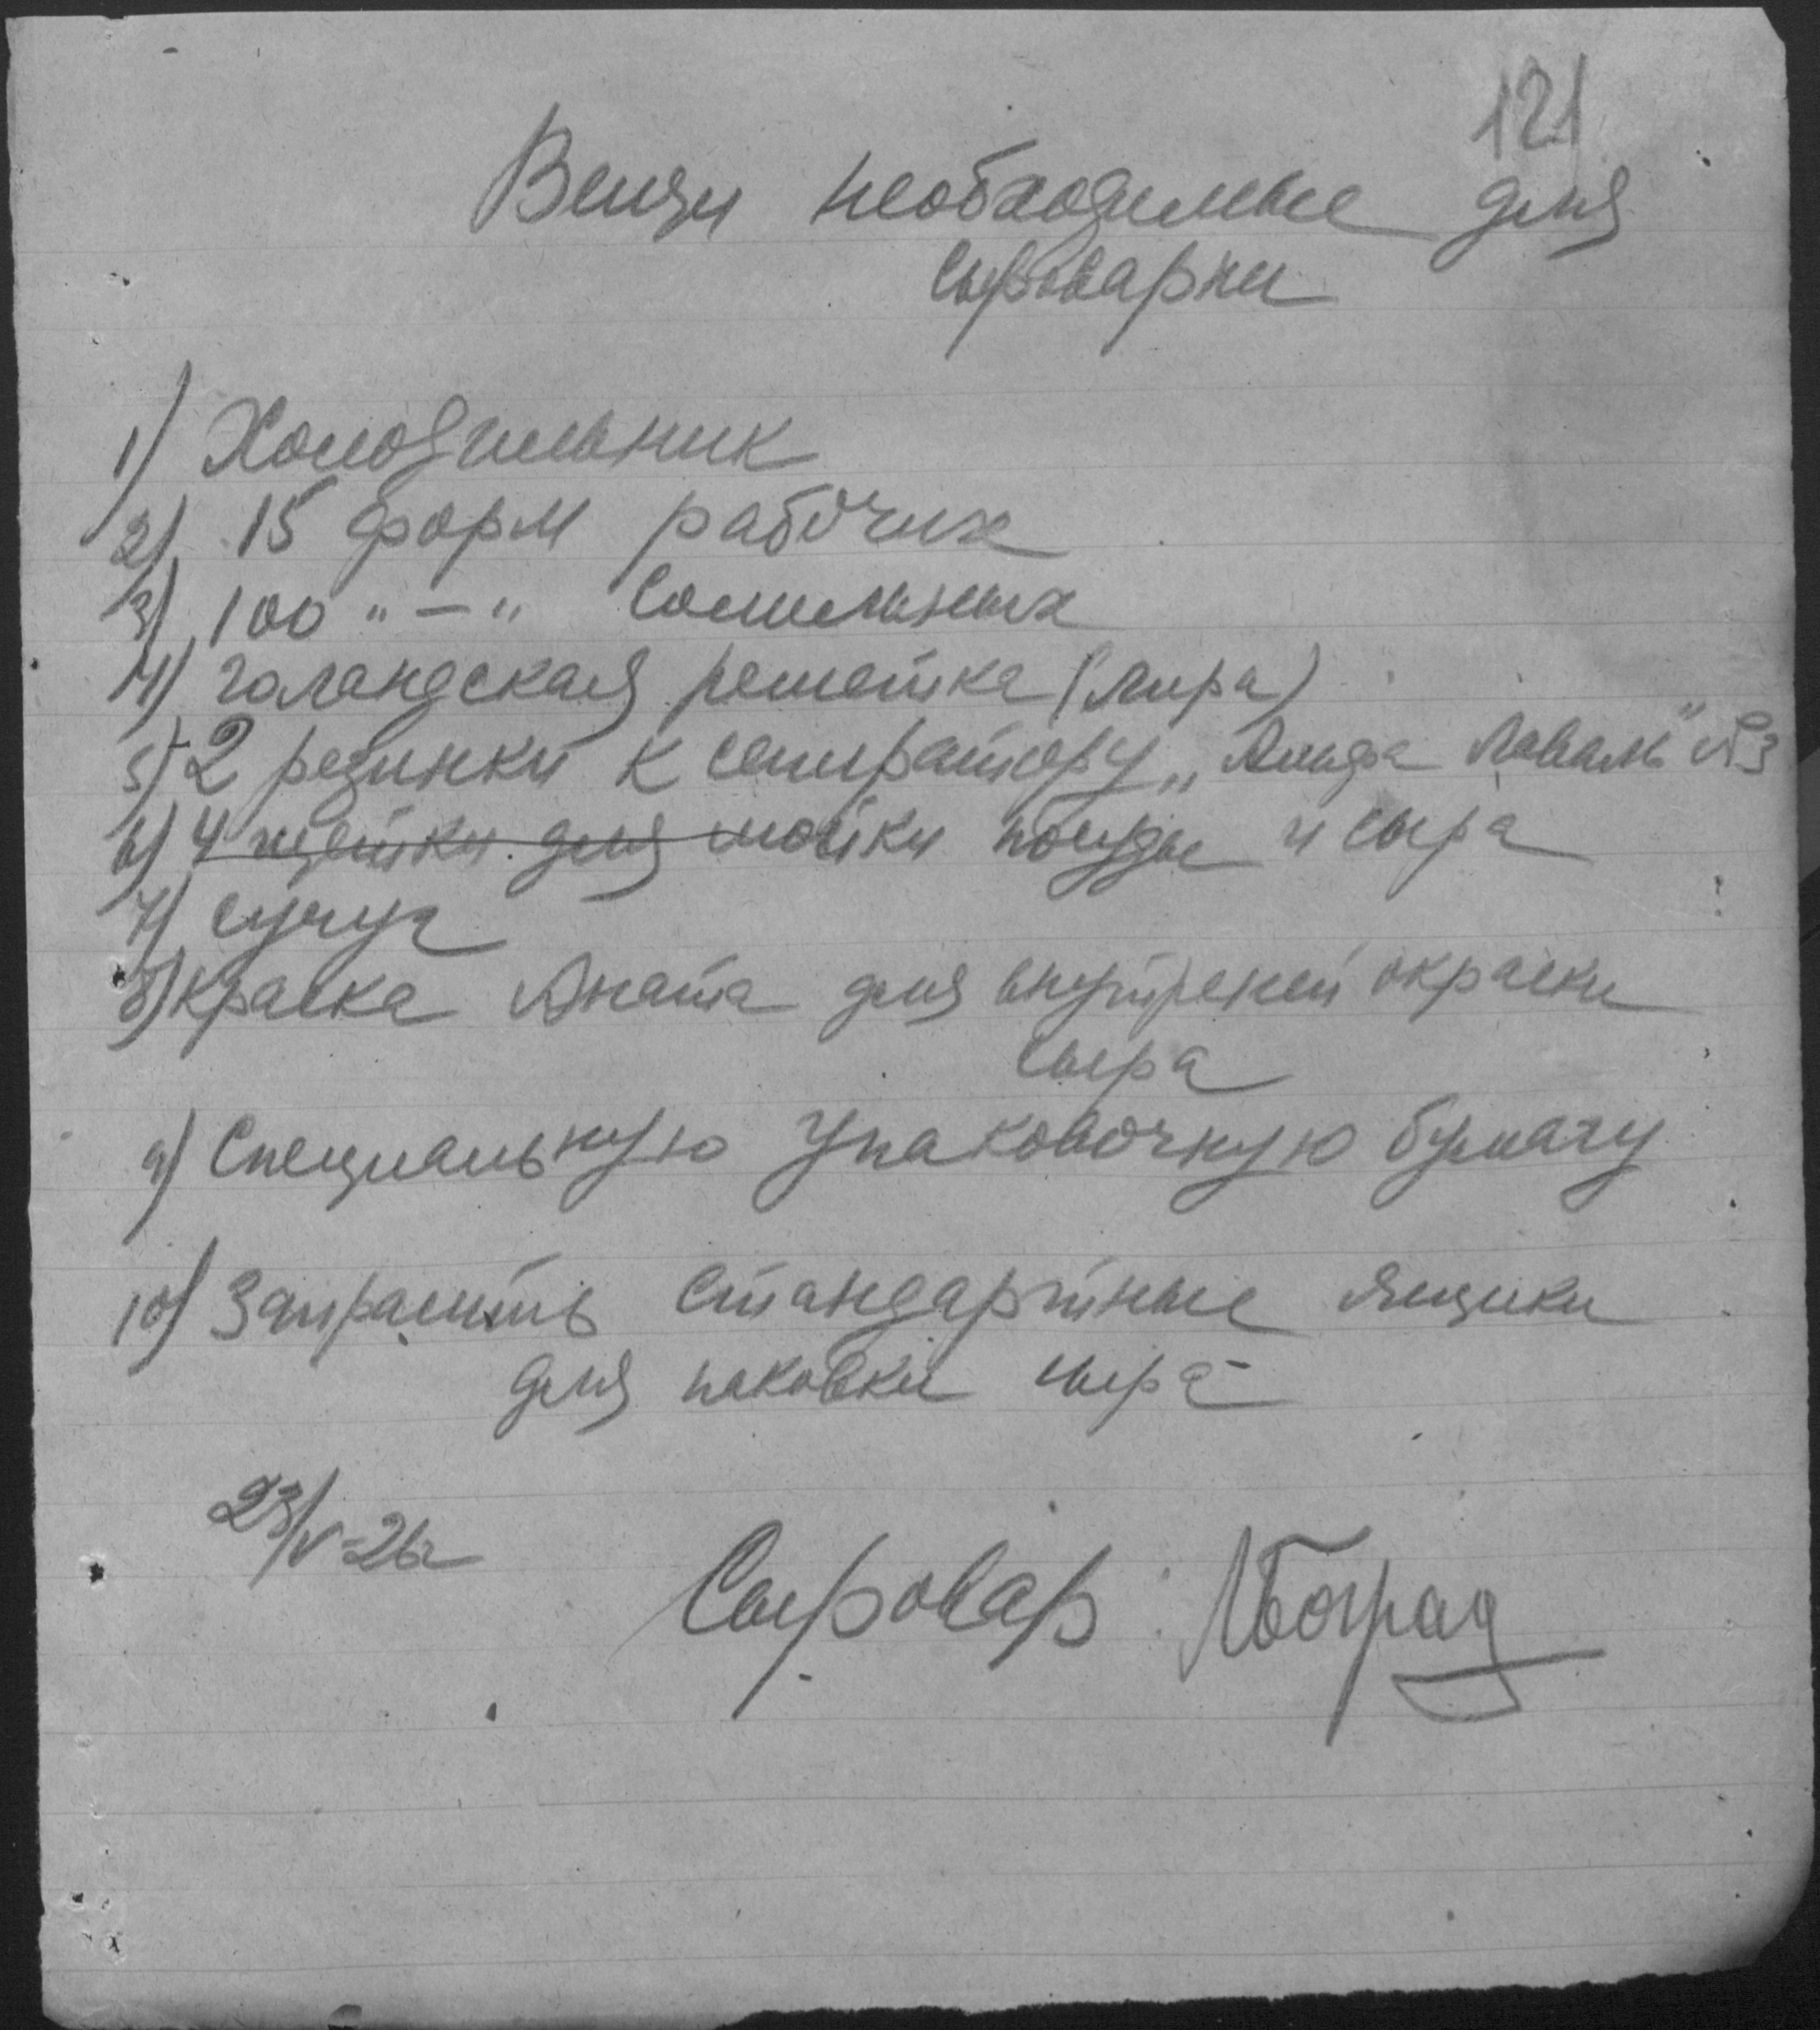 121
Вещи необходимые для
сыроварни
1) Холодильник
2) 15 форм рабочих
3) 100 " — " солильных
4) голандская решетка (лира)
5) 2 резинки к сепиратору „Альфа Лаваль" №3
6) 4 щетки для мойки посуды и сыра
7) сучуг
8) Краска Аната для внутреней окраски
сыра
9) Специальную упаковочную бумагу
10) Запрасить стандартные ящики
для паковки сыра
23/V-26г
Сыровар: МБоград